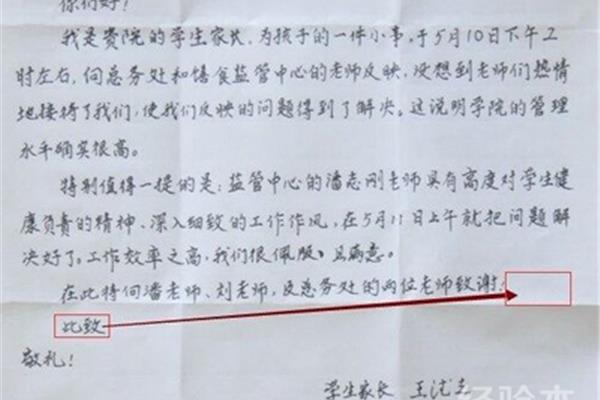 你们好！
我是贵院的学生家长，为孩子的一件小事，于5月10日下午2
时左右，向总务处和膳食监管中心的老师反映，没想到老师们热情
地接待了我们，使我们反映的问题得到了解决。这说明学院的管理
水平确实很高。
特别值得一提的是：监管中心的潘志刚老师具有高度对学生健
康负责的精神、深入细致的工作作风，在5月11日上午就把问题解
决好了。工作效率之高，我们很佩服、且满意。
在此特向潘老师、刘老师，及总务处的两位老师致谢！
此致
敬礼！
学生家长 王